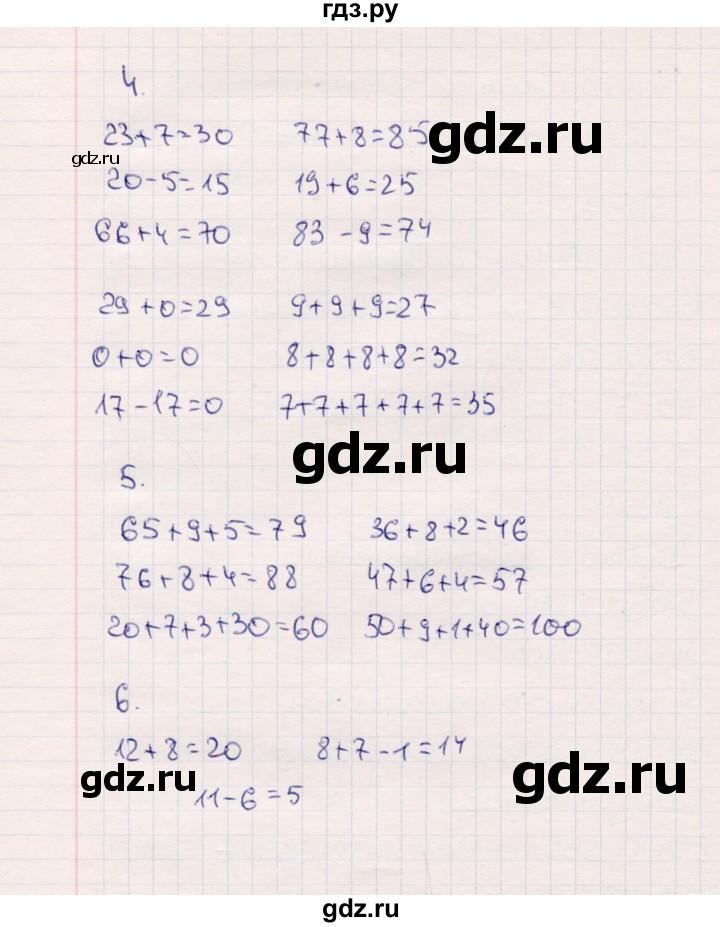 гдз.ру
4.
23+7=30 77+8=85
gdz.ru
gdz.ru
20-5=15 19+6=25
66+4=70 83-9=74
29+0=29 9+9+9=27
0+0=0 8+8+8+8=32
17-17=0 7+7+7+7+7=35
gdz.ru
5.
65+9+5=79 36+8+2=46
76+8+4=88 47+6+4=57
20+7+3+30=60 50+9+1+40=100
6.
12+8=20 8+7-1=14
gdz.ru
gdz.ru
11-6=5
gdz.ru